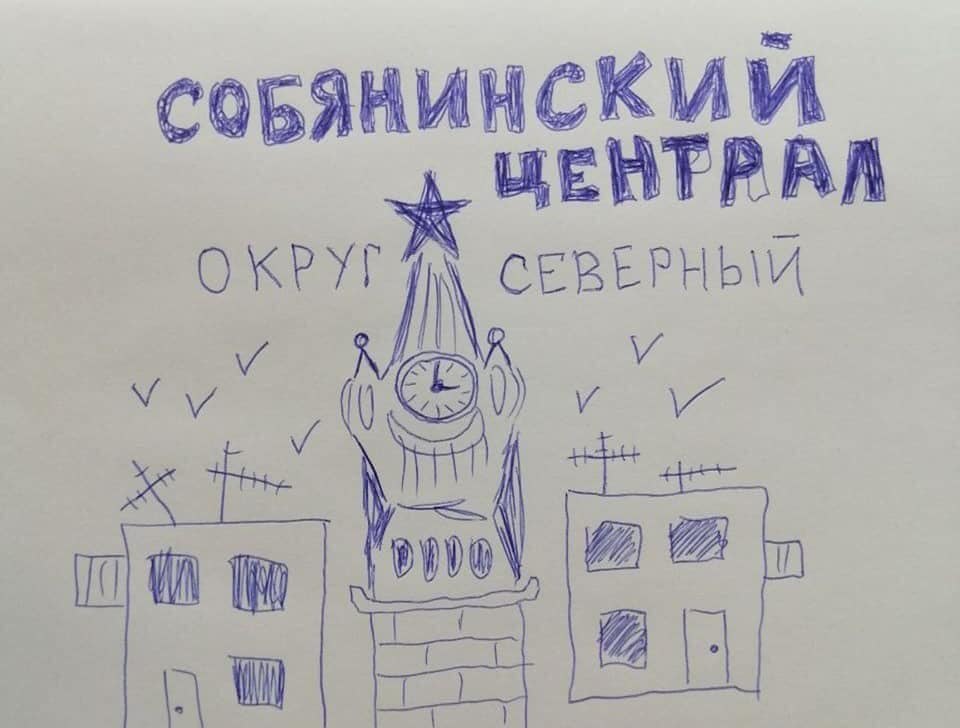 СОБЯНИНСКИЙ
ЦЕНТРАЛ
ОКРУГ СЕВЕРНЫЙ